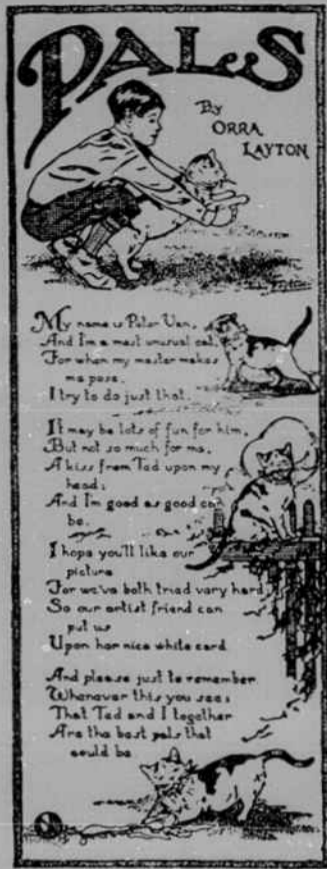 PALS
By
ORRA
LAYTON
My name is Peter Van,
And I'm a most unusual cat,
For when my master makes
me pose,
I try to do just that.
It may be lots of fun for him,
But not so much for me,
A kiss from Tad upon my
head;
And I'm good as good can
be.
I hope you'll like our
picture
For we've both tried very hard
So our artist friend can
put us
Upon her nice white card
And please just to remember
Whenever this you see;
That Tad and I together
Are the best pals that
could be